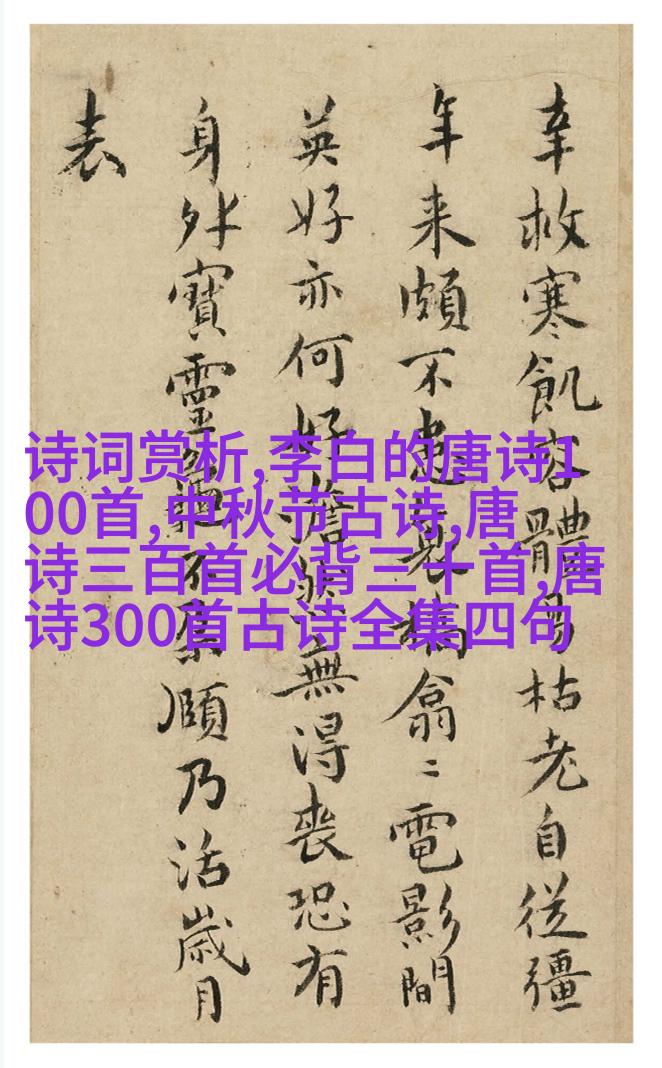 幸救寒飢容體易枯老自從彊
年来頗不槁翕〻電影間
英好亦何好澹然無得喪恐有
身外寶靈龜不朵頤乃活歲月
表
诗词赏析,李白的唐诗1
00首,中秋节古诗,唐
诗三百首必背三十首,唐
诗300首古诗全集四句